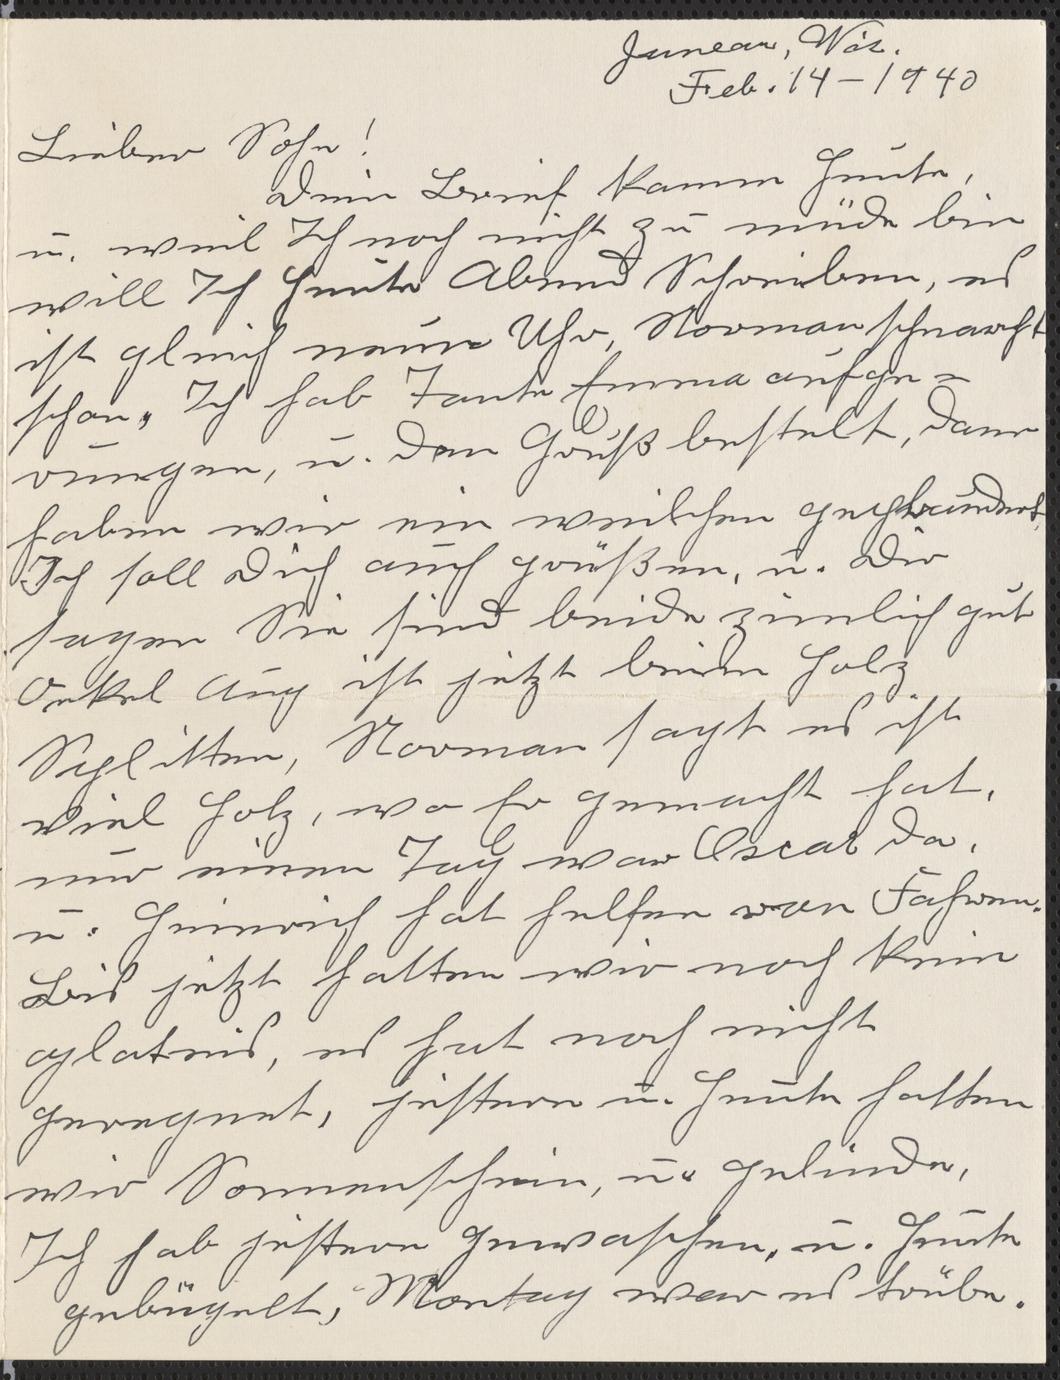 Juneau, Wis.
Feb. 14 – 1940
Lieber Sohn!
Dein Brief kamm heute,
u. weil Ich noch nicht zu müde bin
will Ich heute Abend Schreiben, es
ist gleich neun Uhr, Norman schnarcht
schon. Ich hab Tante Emma aufge=
rungen, u. den Gruß bestelt, dann
haben wir ein weilchen geplaudert,
Ich soll Dich auch grüßen, u. Dir
sagen Sie sind beide zimlich gut
Onkel Aug ist jetzt beim Holz
Splitten, Norman sagt es ist
viel Holz, wo Er gemacht hat,
nur einen Tag war Oscar da,
u. Heinrich hat helfen Fahren.
Bis jetzt hatten wir noch kein
glatteis, es hat noch nicht
geregnet, jestern u. heute hatten
wir Sonnenschein, u. gelinde,
Ich hab jestern gewaschen, u. heute
gebügelt, Montag war es trübe.